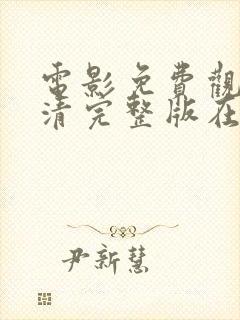 電影免費觀
清完整版在
尹新慧